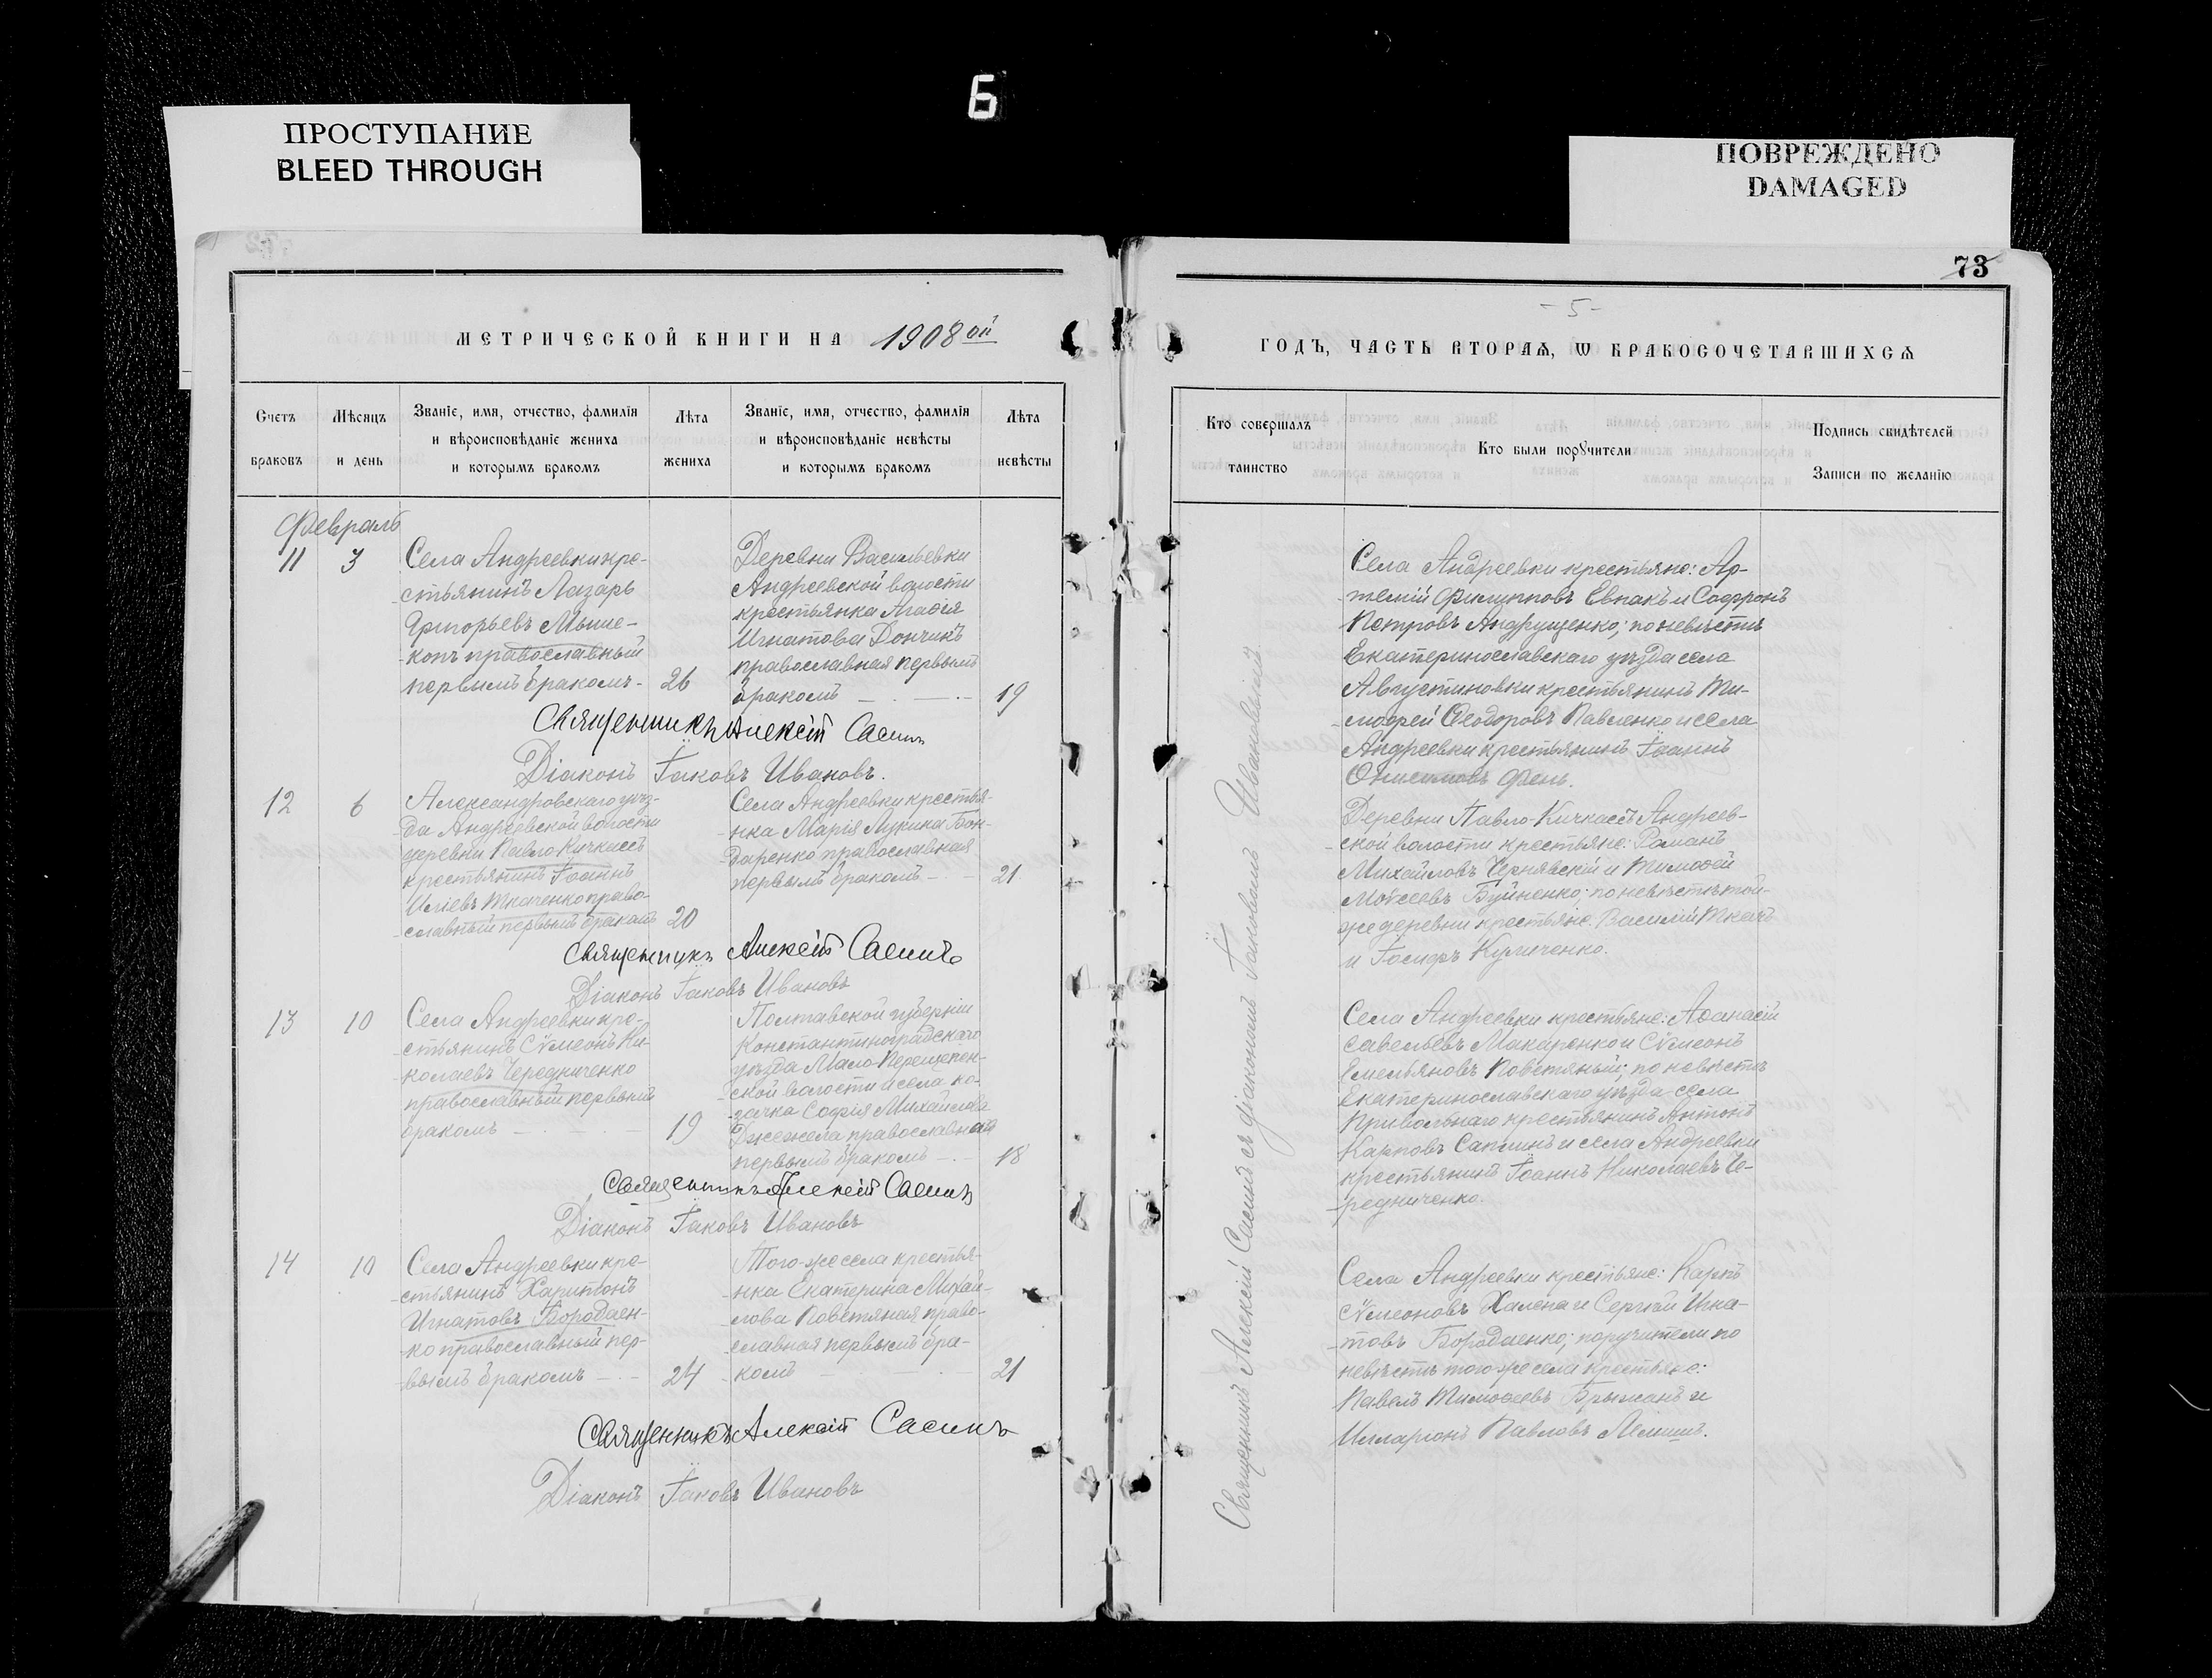 Б
ПРОСТУПАНИЕ
BLEED THROUGH
ПОВРЕЖДЕНО
DAMAGED
73
- 5 -
МЕТРИЧЕСКОЙ КНИГИ НА 1908 ой
ГОДЪ, ЧАСТЬ ВТОРАѦ, Ѡ БРАКОСОЧЕТАВШИХСѦ
Счетъ браковъ
Мѣсяцъ и день
Званіе, имя, отчество, фамилія
и вѣроисповѣданіе жениха
и которымъ бракомъ
Лѣта жениха
Званіе, имя, отчество, фамилія
и вѣроисповѣданіе невѣсты
и которымъ бракомъ
Лѣта невѣсты
Кто совершалъ таинство
Кто были порꙋчители
Подпись свидѣтелей
Записи по желанію
Февраль
11
3
Села Андреевки кре-
стьянинъ Лазарь
Григорьевъ
православный
первымъ бракомъ -
26
Деревни Васильевки
Андреевской волости
крестьянка Марія
Игнатова Дончикъ
православная первымъ
бракомъ
19
Села Андреевки крестьяне: Ар-
темій Филипповъ Евпакъ и Софронъ
Петровъ Андрущенко; по невѣстѣ
Екатеринославскаго уѣзда села
Августиновки крестьянинъ Ти-
мофей Ѳеодоровъ Павленко и села
Андреевки крестьянинъ Іоаннъ
Онисимовъ Фень.
Священникъ Алексій Сасинъ
Діаконъ Іаковъ Ивановъ.
12
6
Александровскаго уѣз-
да Андреевской волости
деревни Павло-Кичкасъ
крестьянинъ Іоаннъ
Иліевъ Ткаченко право-
славный первымъ бракомъ
20
Села Андреевки крестья-
нка Марія Лукина Бон-
даренко православная
первымъ бракомъ -
21
Деревни Павло-Кичкасъ Андреев-
ской волости крестьяне: Романъ
Михайловъ Чернявскій и Тимоѳей
Моѵсеевъ Буйненко; по невѣстѣ той-
же деревни крестьяне: Василій Ткачъ
и Іосифъ Куличенко.
Священникъ Алексій Сасинъ
Діаконъ Іаковъ Ивановъ
13
10
Села Андреевки кре-
стьянинъ Сѵмеонъ Ни-
колаевъ Чередниченко
православный первымъ
бракомъ
19
Полтавской губерніи
Константиноградскаго
уѣзда Мало-Перещепен-
ской волости и села ка-
зачка Софія Михайлова
Джежела православная
первымъ бракомъ -
18
Села Андреевки крестьяне: Аѳанасій
Савельевъ Макаренко и Сѵмеонъ
Емельяновъ Повстяный; по невѣстѣ
Екатеринославскаго уѣзда села
Привольнаго крестьянинъ Антонъ
Карповъ Саплинъ и села Андреевки
крестьянинъ Іоаннъ Николаевъ Че-
редниченко.
Священникъ Алексій Сасинъ
Діаконъ Іаковъ Ивановъ
14
10
Села Андреевки кре-
стьянинъ Харитонъ
Игнатовъ Бородаен-
ко православный пер-
вымъ бракомъ -
24
Того-же села крестья-
нка Екатерина Михай-
лова Повстяная право-
славная первымъ бра-
комъ
21
Села Андреевки крестьяне: Карпъ
Сѵмеоновъ Халена и Сергѣй Игна-
товъ Бородаенко; поручители по
невѣстѣ того-же села крестьяне:
Павелъ Тимоѳеевъ и
Илларіонъ Павловъ
Священникъ Алексій Сасинъ
Діаконъ Іаковъ Ивановъ
Священникъ Алексій Сасинъ съ діакономъ Іаковомъ Ивановымъ